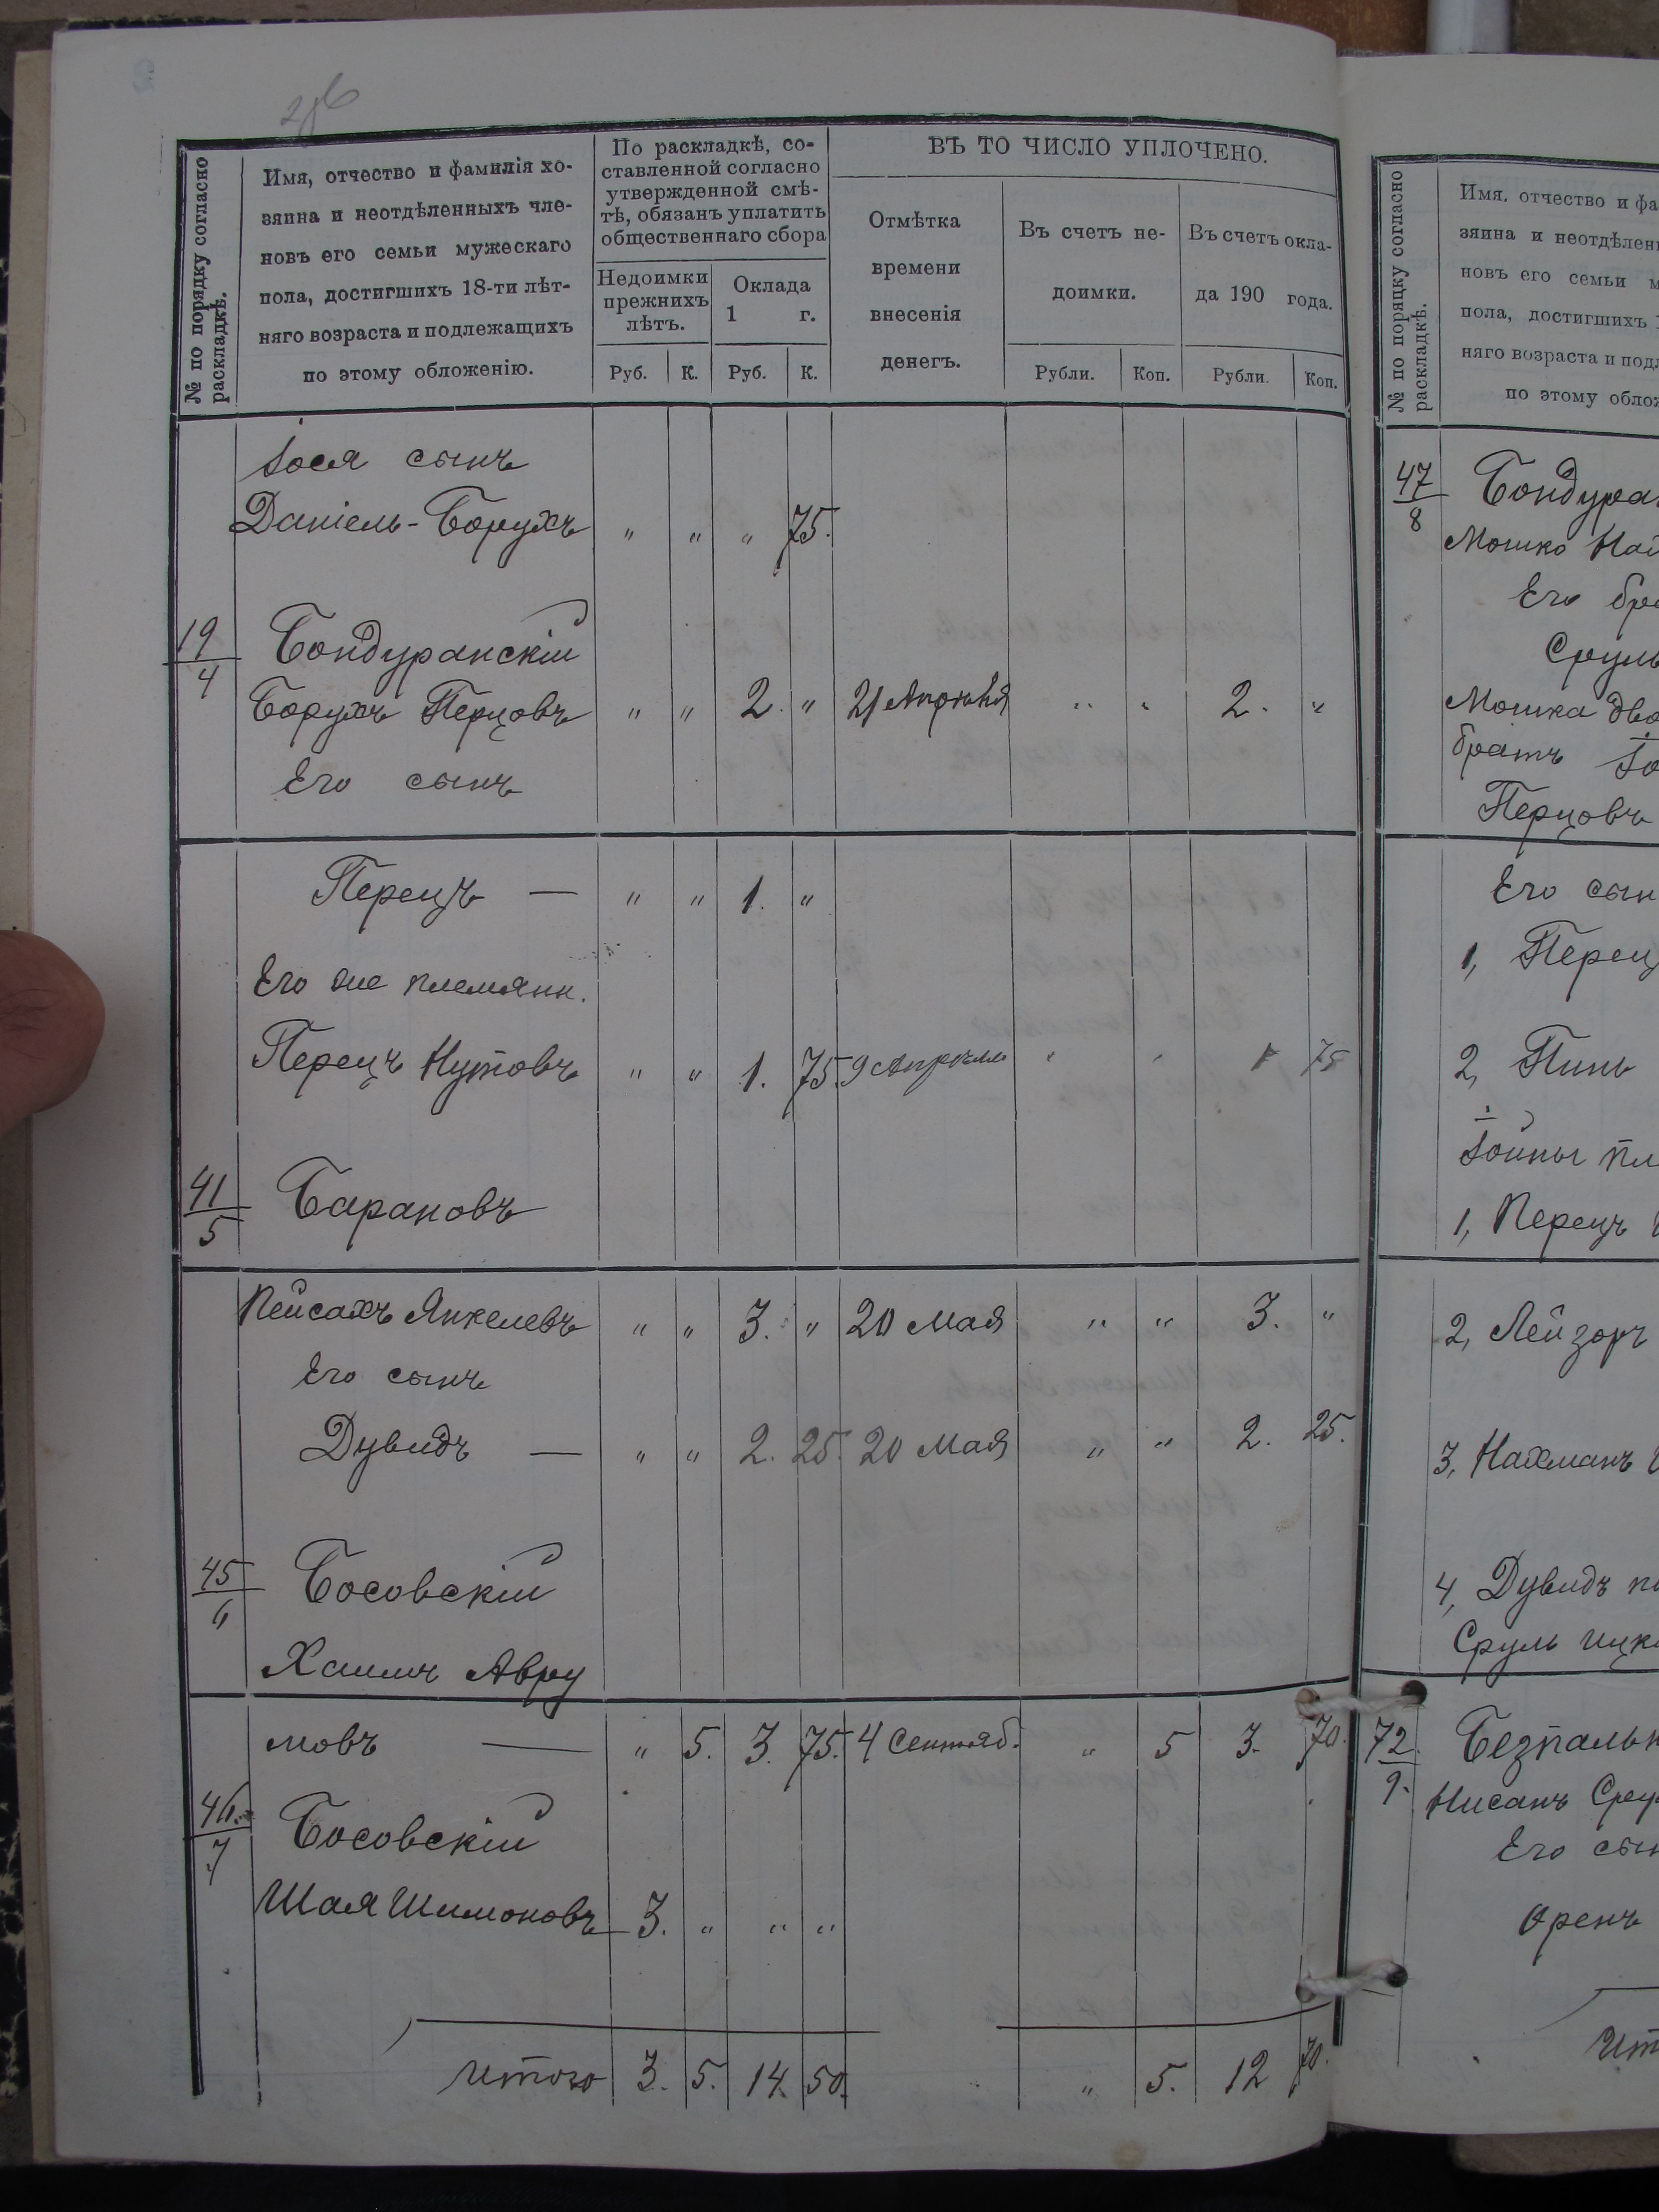 № по порядку согласно раскладкѣ.
Имя, отчество и фамилія хо-
зяина и неотдѣленныхъ чле-
новъ его семьи мужескаго
пола, достигшихъ 18-ти лѣт-
няго возраста и подлежащихъ
по этому обложенію.
По раскладкѣ, со-
ставленной согласно
утвержденной смѣ-
тѣ, обязанъ уплатить
общественнаго сбора
Недоимки
прежнихъ
лѣтъ.
Оклада
1 г.
Руб. К. Руб. К.
ВЪ ТО ЧИСЛО УПЛОЧЕНО.
Отмѣтка
времени
внесенія
денегъ.
Въ счетъ не-
доимки.
Въ счетъ окла-
да 190 года.
Рубли. Коп. Рубли. Коп.
Іося сынъ
Даніель-Борухъ " " " 75.
19/4 Бондуранскій
Борухъ Перцовъ " " 2. " 21 Апрѣля " " 2. "
Его сынъ
Перецъ — " " 1. "
Его же племянн.
Перецъ Нутовъ " " 1. 75. 9 Апрѣля " " 1 75
41/5 Барановъ
Пейсахъ Янкелевъ " " 3. " 20 Мая " " 3. "
Его сынъ
Дувидъ — " " 2. 25. 20 Мая " " 2. 25.
45/6 Босовскій
Хаимъ Авру
мовъ — " 5. 3. 75. 4 Сентяб. " 5 3. 70.
46/7 Босовскій
Шая Шимоновъ 3. " " "
Итого 3. 5. 14. 50. " 5. 12 70.
№ по порядку согласно раскладкѣ.
Имя, отчество и фа
зяина и неотдѣлен
новъ его семьи м
пола, достигшихъ
няго возраста и под
по этому обло
47/8 Бондура
Мошко
Его бра
Сруль
Мошка дво
братъ
Перцовъ
Его сын
1, Перец
2, Пинь
Іойны пл
1, Перецъ
2, Лейзоръ
3, Нахманъ
4, Дувидъ
Сруль Ицк
72/9. Безпальк
Нисанъ Сру
Его сын
Оренъ
Ит